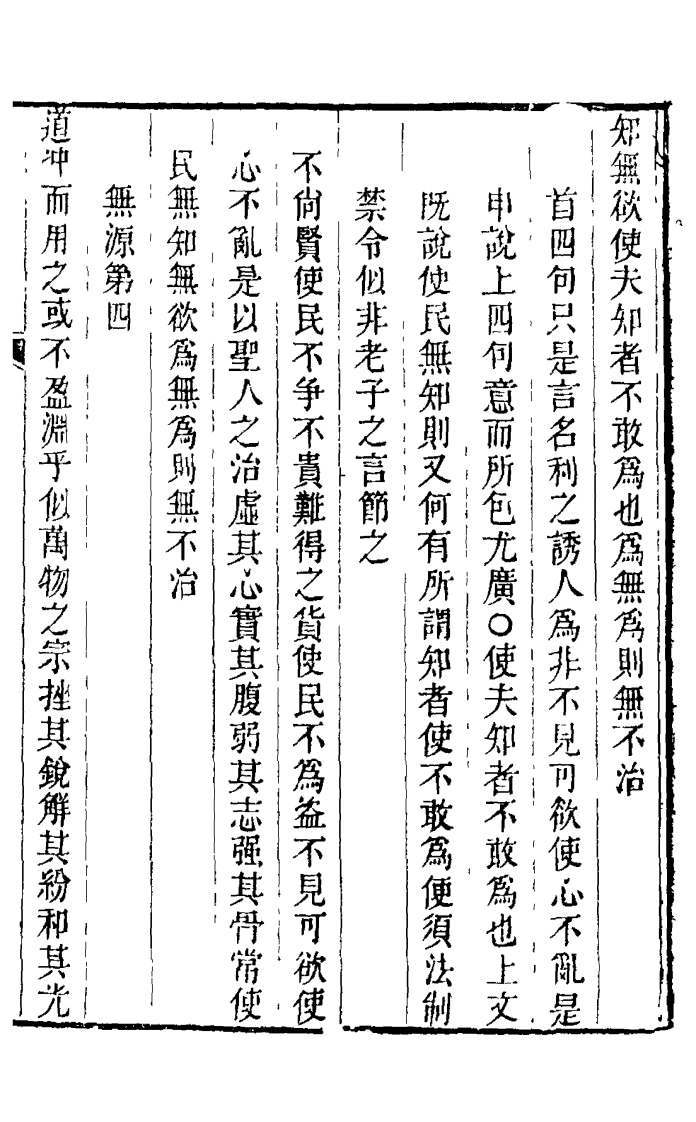 知無欲使夫知者不敢爲也爲無爲則無不治
首四句只是言名利之誘人爲非不見可欲使心不亂是
申說上四句意而所包尤廣○使夫知者不敢爲也上文
旣說使民無知則又何有所謂知者使不敢爲便須法制
禁令似非老子之言節之
不尙賢使民不争不貴難得之貨使民不爲盜不見可欲使
心不亂是以聖人之治虛其心實其腹弱其志强其骨常使
民無知無欲爲無爲則無不治
無源第四
道冲而用之或不盈淵乎似萬物之宗挫其銳解其紛和其光